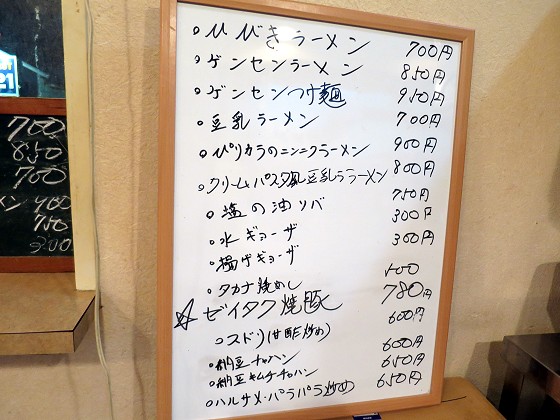 21
700
850
700
400
750
300
・ひびきラーメン 700円
・ゲンセンラーメン 850円
・ゲンセンつけ麺 950円
・豆乳ラーメン 700円
・ぴりカラのニンニクラーメン 900円
・クリームパスタ風豆乳ラーメン 800円
・塩の油ソバ 750円
・水ギョーザ 300円
・揚げギョーザ 300円
・タカナ焼めし
☆ゼイタク焼豚 780円
・スドリ(甘酢炒め) 600円
・納豆チャーハン 600円
・納豆キムチチャーハン 650円
・ハルサメ・パラパラ炒め 650円